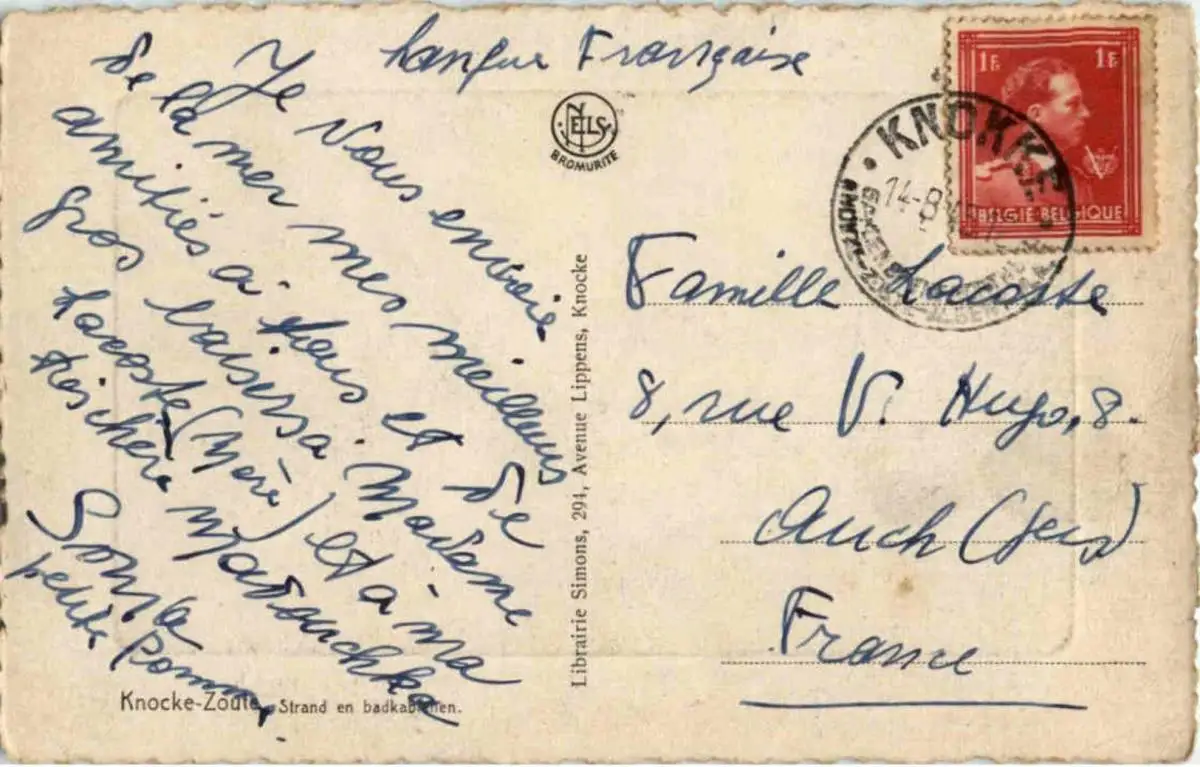 Langue Française
Je vous envoie
de la mer mes meilleurs
amitiés à tous et de
gros baisers à Madame
Lacoste (Mère) et à ma
très chère Madouchka
Sonja
petite Pomme.
NELS
BROMURITE
1F 1F
BELGIE-BELGIQUE
KNOKKE
14-8
Famille Lacoste
8, rue V. Hugo, 8.
Auch (Gers)
France
Librairie Simons, 294, Avenue Lippens, Knocke
Knocke-Zoute. Strand en badkabienen.